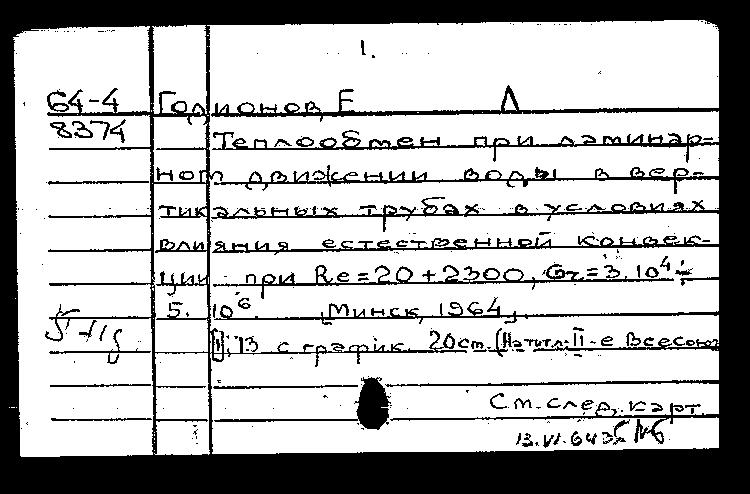 1.
64-4 Годионов, Е Л
8374 Теплообмен при ламинар-
ном движении воды в вер-
тикальных трубах в условиях
влияния естественной конвек-
ции при Re=20+2300, Gr=3.10⁴÷
5.10⁶. [Минск, 1964].
13 с график. 20см. (На титл: II-е Всесоюз
См. след. карт.
13.VI.64